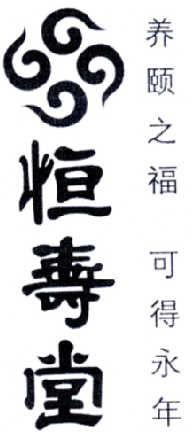 恒壽堂
养颐之福 可得永年